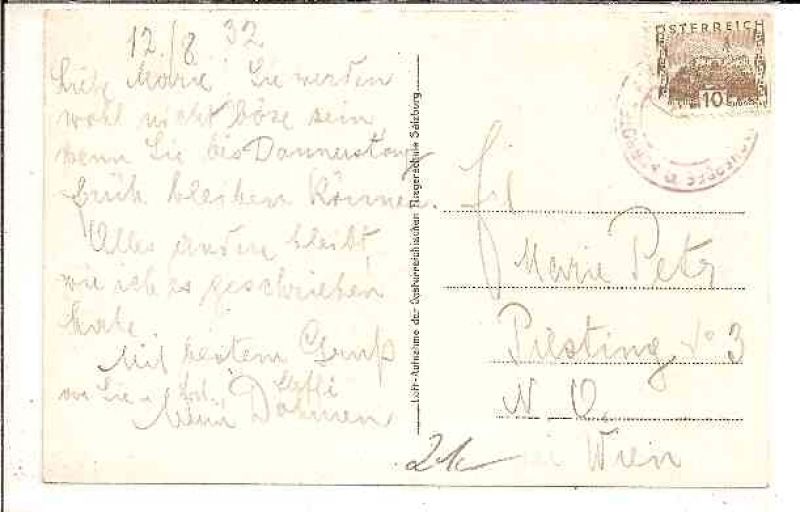 12./8. 32
Liebe Marie! Sie werden
wohl nicht böse sein
wenn Sie bis Donnerstag
früh bleiben können.
Alles andere bleibt,
wie ich es geschrieben
habe.
Mit bestem Gruß
Sie
Dohmen
Luft-Aufnahme der Oesterreichischen Fliegerschule Salzburg
ÖSTERREICH
10
Frl
Marie Petz
Piesting No 3
N. Ö.
bei Wien